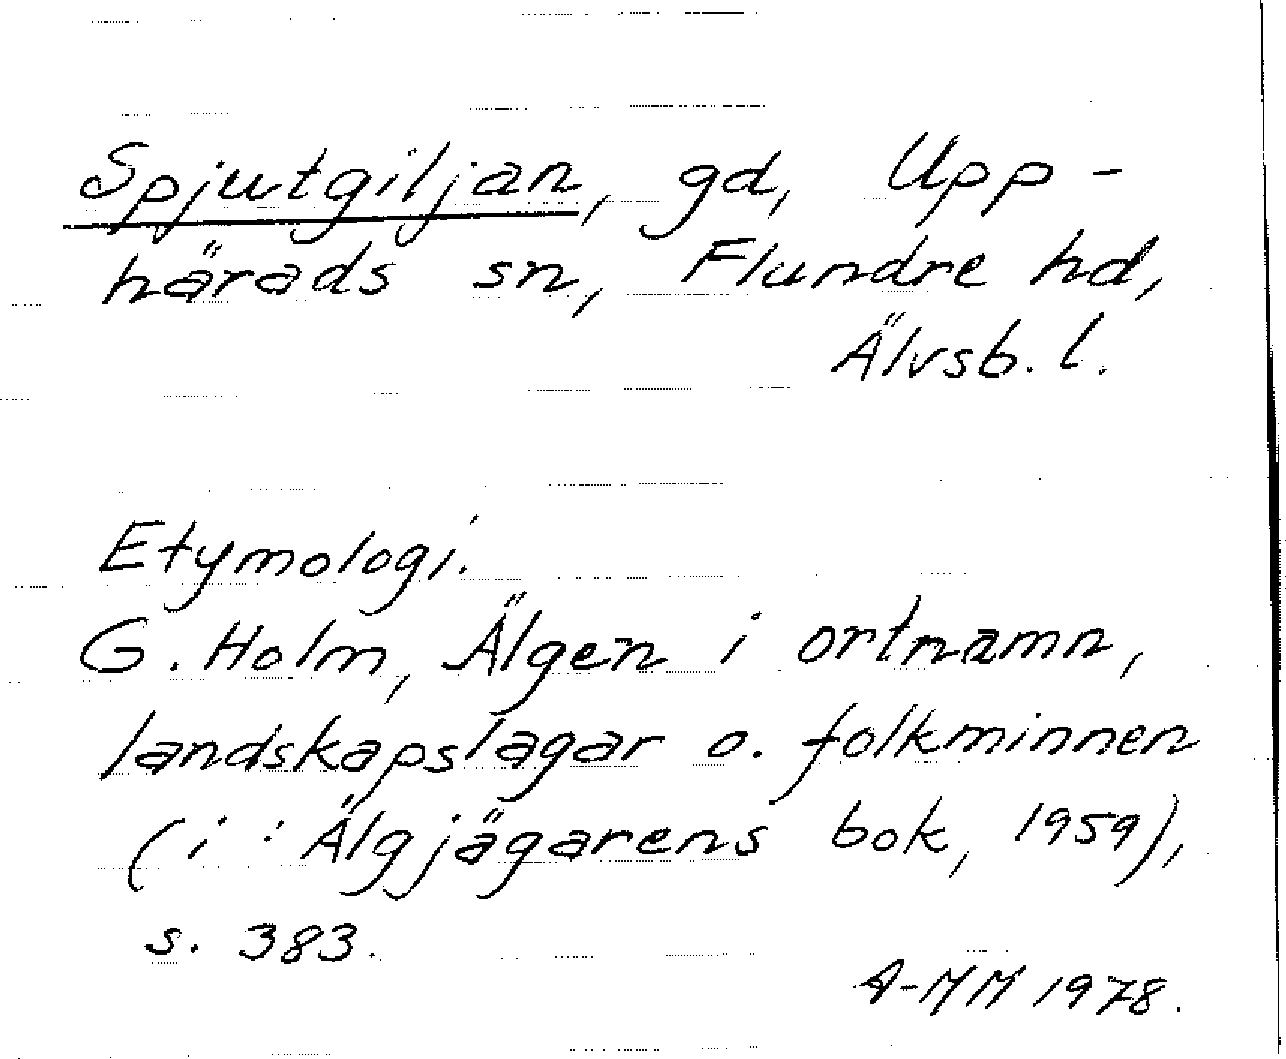 Spjutgiljan, gd, Upp-
härads sn, Flundre hd,
Älvsb. l.
Etymologi.
G. Holm, Älgen i ortnamn,
landskapslagar o. folkminnen
(i: Älgjägarens bok, 1959),
s. 383.
A-MM 1978.